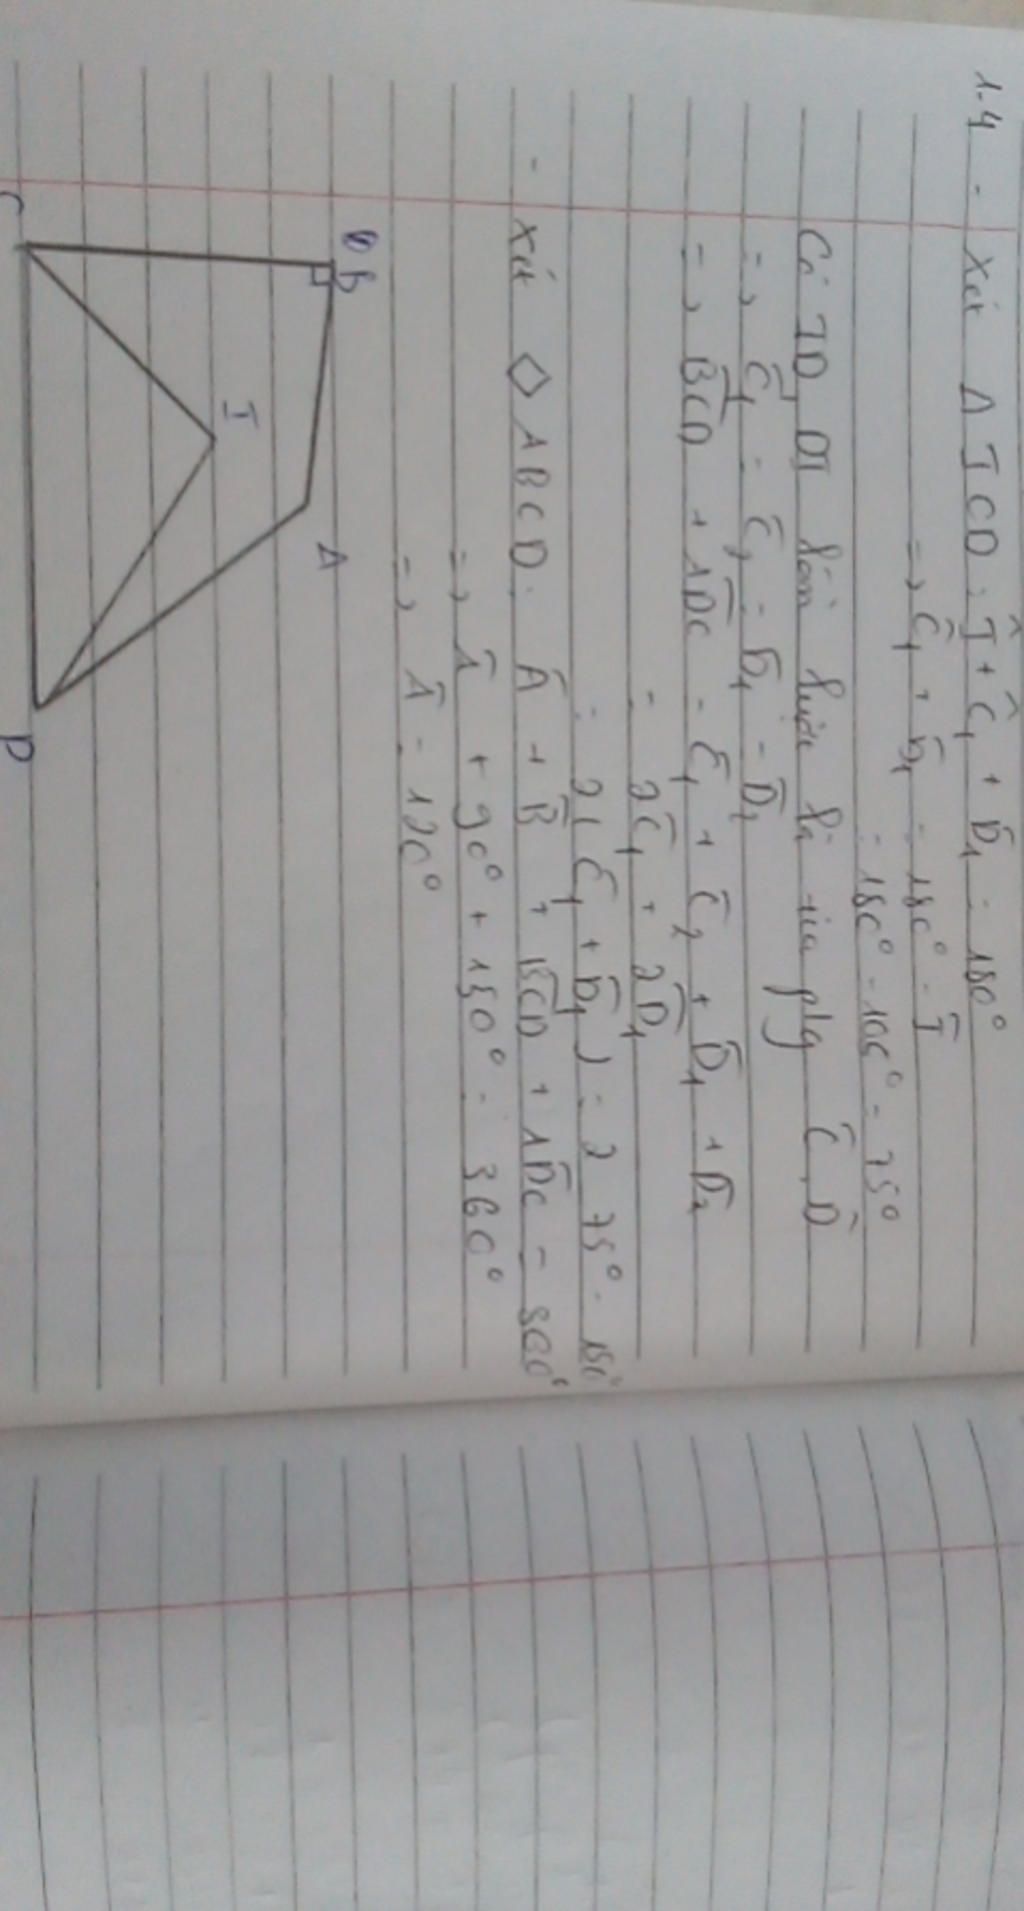 1.4 - Xét Δ ICD: Î + Ĉ₁ + D̂₁ = 180°
=> Ĉ₁ + D̂₁ = 180° - Î
= 180° - 105° = 75°
Có DI lần lượt là tia p/g Ĉ, D̂
=> Ĉ₁ = Ĉ₂ = D̂₁ = D̂₂
=> BĈD + ADC = Ĉ₁ + Ĉ₂ + D̂₁ + D̂₂
= 2Ĉ₁ + 2D̂₁
= 2(Ĉ₁ + D̂₁) = 2 75° = 150°
- Xét ◇ABCD: Â + B̂ + BĈD + ADC = 360°
=> Â + 90° + 150° = 360°
=> Â = 120°
B
A
I
C
D